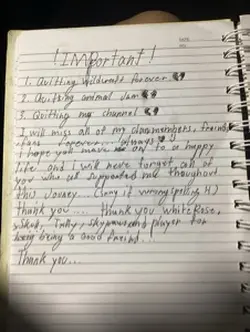 ! IMPortant !
1. Quitting Wildcraft forever
2. Quitting animal Jam
3. Quiting my channel
I will miss all of my clanmembers, friends
fans forever... always
I hope you make to a happy
life and I will never forget all of
you who supported me throughout
this Jouney... (Sorry if wrong spelling H)
Thank you.... Thank you White Rose,
and player for
being a good friend...
Thank you...